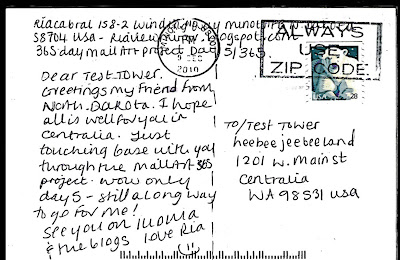 Riacabral 158-2 Minot
58704 USA -
365 day mail Art project Day 5/365
DEC
2010
ALWAYS
USE
ZIP CODE
Dear Test Tower.
Greetings my friend from
North Dakota. I hope
all is well for you in
Centralia. Just
touching base with you
through the mail Art 365
project. Now only
day 5 - still a long way
to go for me!
See you on IUOMA
& the blogs love Ria
To/Test Tower
heebee jeebeeland
1201 W. Main st
Centralia
WA 98531 USA